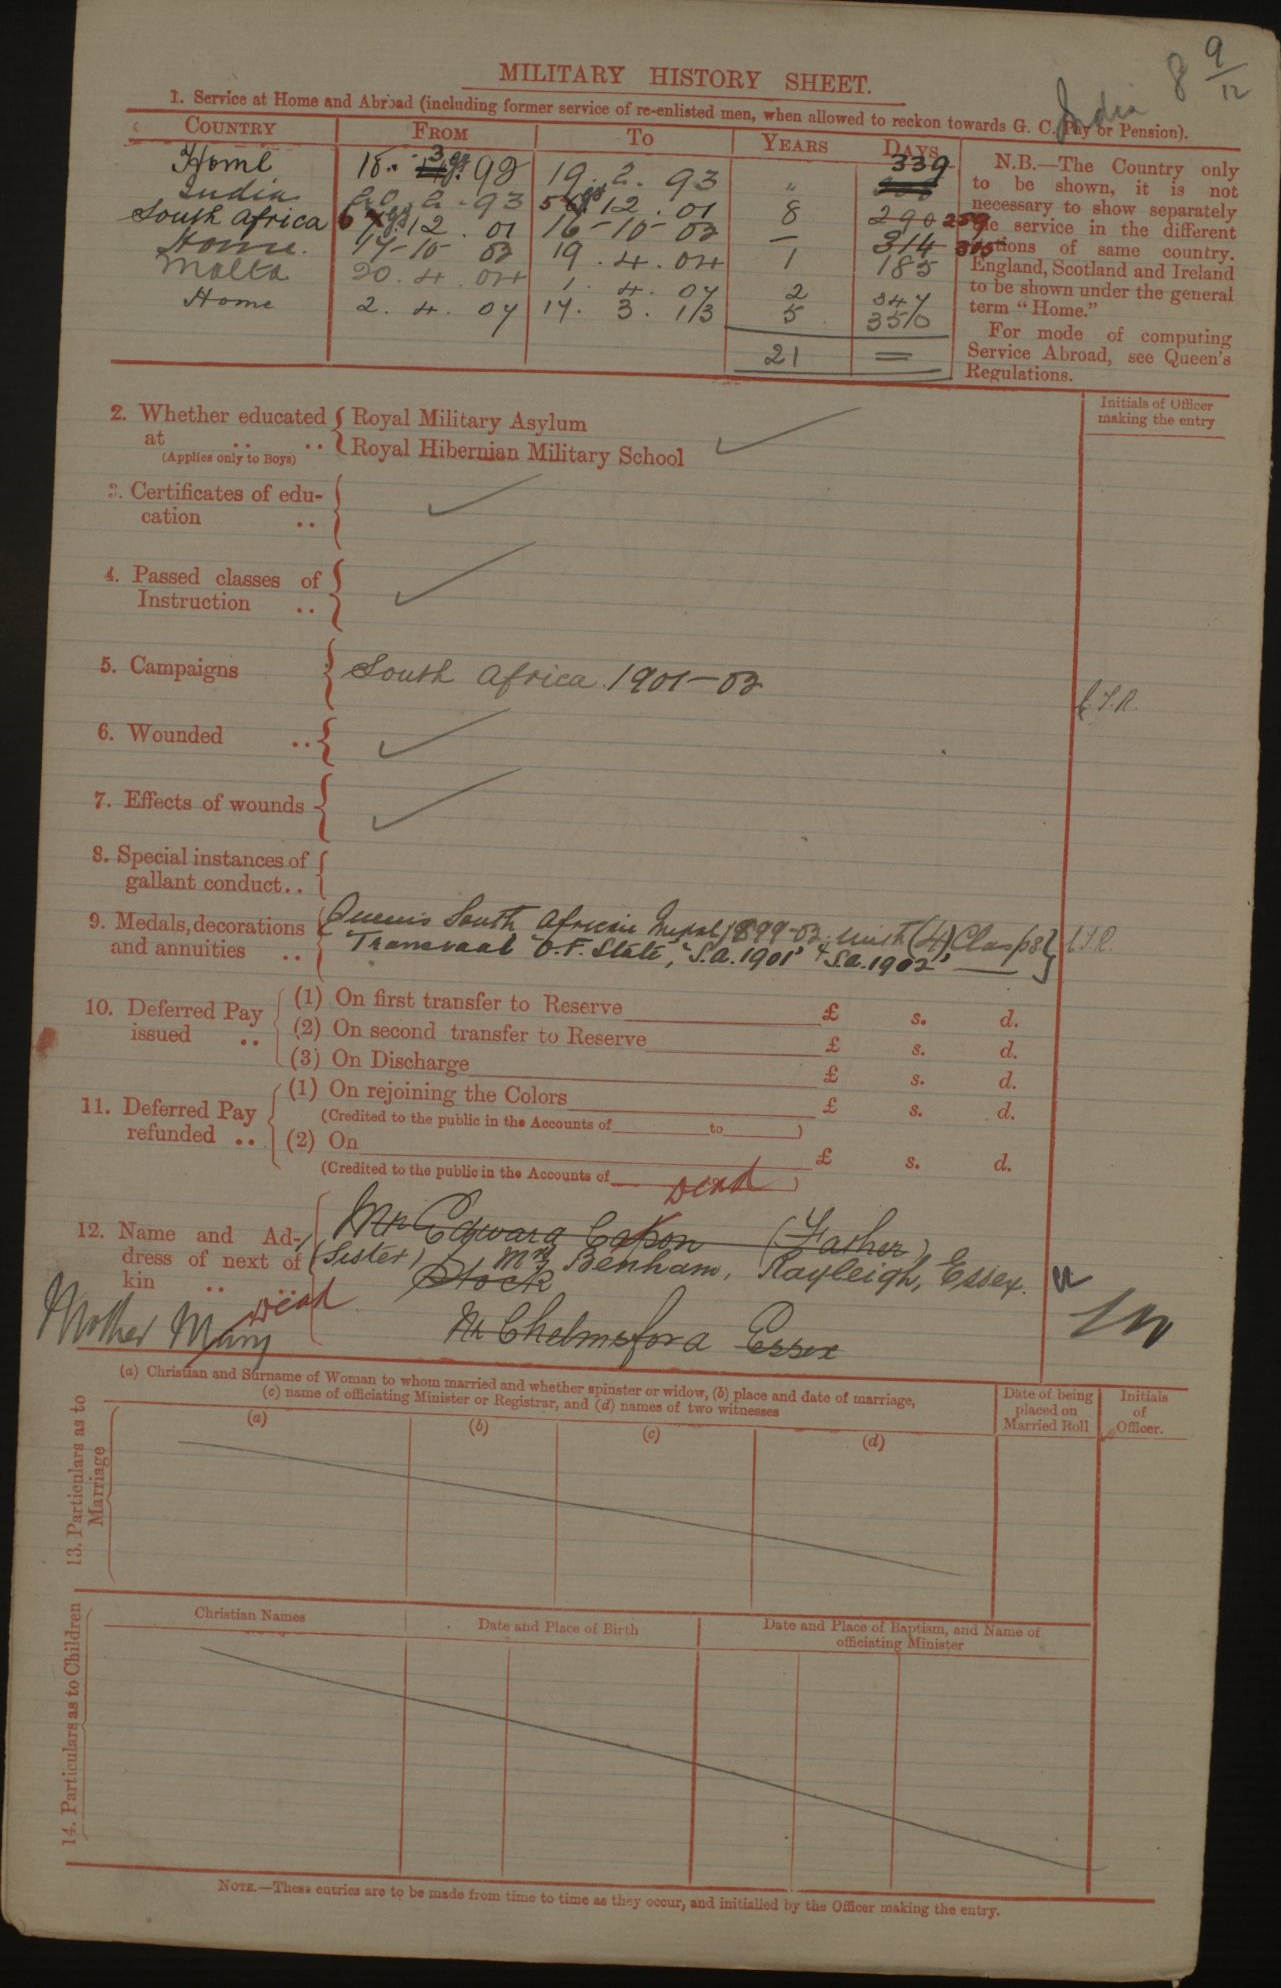 MILITARY HISTORY SHEET.
India 8 9/12
1. Service at Home and Abroad (including former service of re-enlisted men, when allowed to reckon towards G. C. Pay or Pension).
COUNTRY FROM TO YEARS DAYS
Home 18. 3. 92 19. 2. 93 " 339
India 20. 2. 93 5. 12. 01 8 290 289
South Africa 6 12. 01 16-10-02 — 314 315
Home. 17-10-02 19. 4. 04 1 185
Malta 20. 4. 04 1. 4. 07 2 347
Home 2. 4. 07 17. 3. 13 5 350
21 =
N.B.—The Country only
to be shown, it is not
necessary to show separately
the service in the different
stations of same country.
England, Scotland and Ireland
to be shown under the general
term "Home."
For mode of computing
Service Abroad, see Queen's
Regulations.
Initials of Officer
making the entry
2. Whether educated { Royal Military Asylum
at .. .. { Royal Hibernian Military School
(Applies only to Boys)
3. Certificates of edu-
cation ..
4. Passed classes of
Instruction ..
5. Campaigns South Africa. 1901-02
6. Wounded ..
7. Effects of wounds
8. Special instances of
gallant conduct..
9. Medals, decorations Queen's South African Medal 1899-02. with (4) Clasps
and annuities .. Transvaal "O.F. State", "S.A. 1901" + "S.A. 1902"
10. Deferred Pay (1) On first transfer to Reserve £ s. d.
issued .. (2) On second transfer to Reserve £ s. d.
(3) On Discharge £ s. d.
11. Deferred Pay (1) On rejoining the Colors £ s. d.
(Credited to the public in the Accounts of to )
refunded .. (2) On £ s. d.
(Credited to the public in the Accounts of )
Dead
12. Name and Ad- Mr Edward (Father)
dress of next of (Sister) Mrs Benham, Rayleigh, Essex.
kin .. .. Stock
Dead
Mother Mary Nr Chelmsford Essex
13. Particulars as to Marriage
(a) Christian and Surname of Woman to whom married and whether spinster or widow, (b) place and date of marriage,
(c) name of officiating Minister or Registrar, and (d) names of two witnesses
Date of being
placed on
Married Roll
Initials
of
Officer.
(a) (b) (c) (d)
14. Particulars as to Children
Christian Names Date and Place of Birth Date and Place of Baptism, and Name of
officiating Minister
NOTE.—These entries are to be made from time to time as they occur, and initialled by the Officer making the entry.